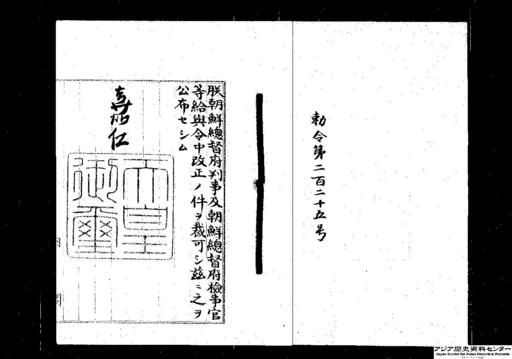 勅令第二百二十五号
朕朝鮮總督府判事及朝鮮總督府檢事官
等給與令中改正ノ件ヲ裁可シ玆ニ之ヲ
公布セシム
嘉仁
天皇
御璽
アジア歴史資料センター
Japan Center for Asian Historical Records